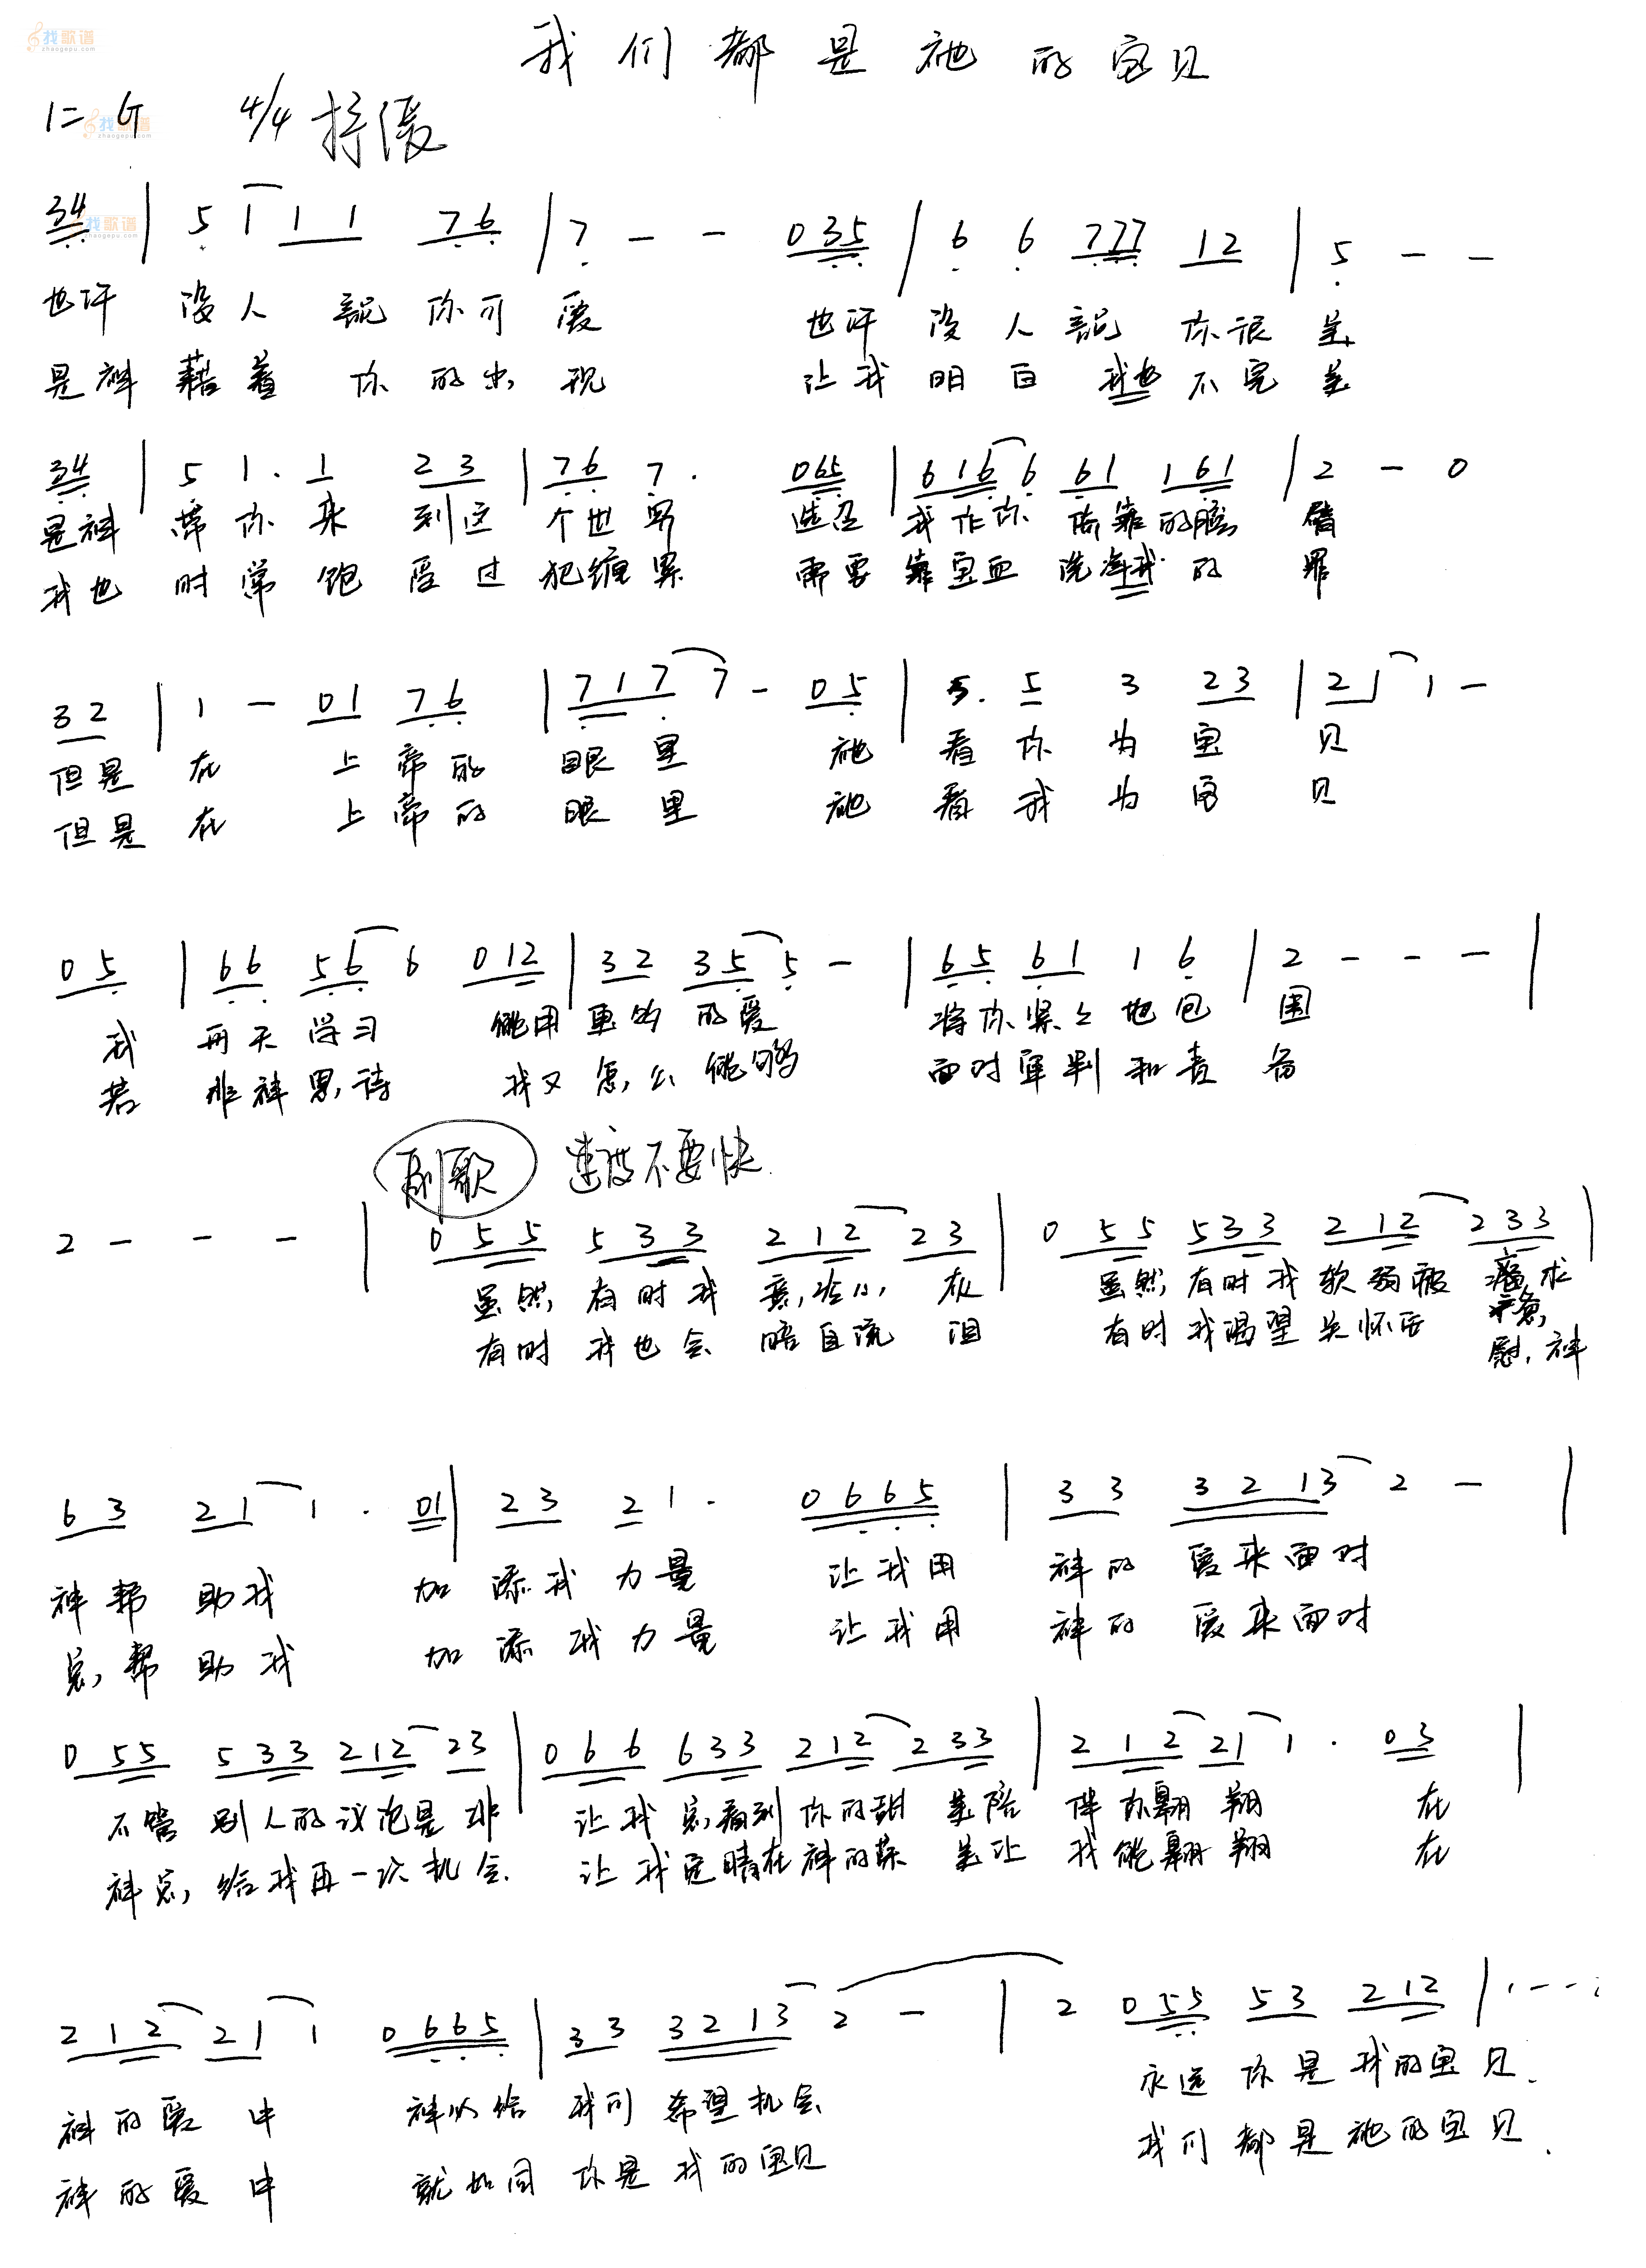 找歌谱
zhaogepu.com
我们都是祂的宝贝
1=G 4/4 抒缓
找歌谱
zhaogepu.com
34 | 5 1 1 1 76 | 7 - - 035 | 6 6 777 12 | 5 - -
找歌谱
也许 没人 说 你可 爱 也许 没人说 你很 美
是神 藉着 你的出现 让我 明白 我也 不完美
34 | 5 1 . 1 23 | 76 7 . 065 | 616 6 61 161 | 2 - 0
是神 带你来 到这个世界 造我作你 倚靠的臂
我也 时常 饱受过犯缠累 需要靠宝血 洗净我的 罪
32 | 1 - 01 76 | 717 7 - 05 | 5. 5 3 23 | 21 1 -
但是 在 上帝的 眼里 祂 看你为宝贝
但是 在 上帝的 眼里 祂 看我为宝贝
05 | 66 56 6 012 | 32 35 5 - | 65 61 1 6 | 2 - - - |
我 每天学习 能用更多的爱 将你紧紧地包 围
若 非神恩待 我又怎么能够 面对审判和责 备
副歌 速度不要快
2 - - - | 055 533 212 23 | 0 55 533 212 233 |
虽然有时我 灰心 虽然有时我软弱疲惫求
有时我也会暗自流泪 有时我渴望关怀安慰,神
63 21 1 . 01 | 23 21 . 0665 | 33 3213 2 - |
神帮助我 加添我力量 让我用 神的爱来面对
您,帮助我 加添我力量 让我用 神的爱来面对
055 533 212 23 | 066 633 212 233 | 212 21 1 . 03 |
不管别人的议论是非 让我总看到你的甜美陪伴你翱翔 在
神您,给我再一次机会 让我定睛在神的荣美让我能翱翔 在
212 21 1 0665 | 33 3213 2 - | 2 055 53 212 | 1 - - -
神的爱中 神必给我们希望机会 永远你是我的宝贝.
神的爱中 就如同你是我的宝贝 我们都是祂的宝贝.